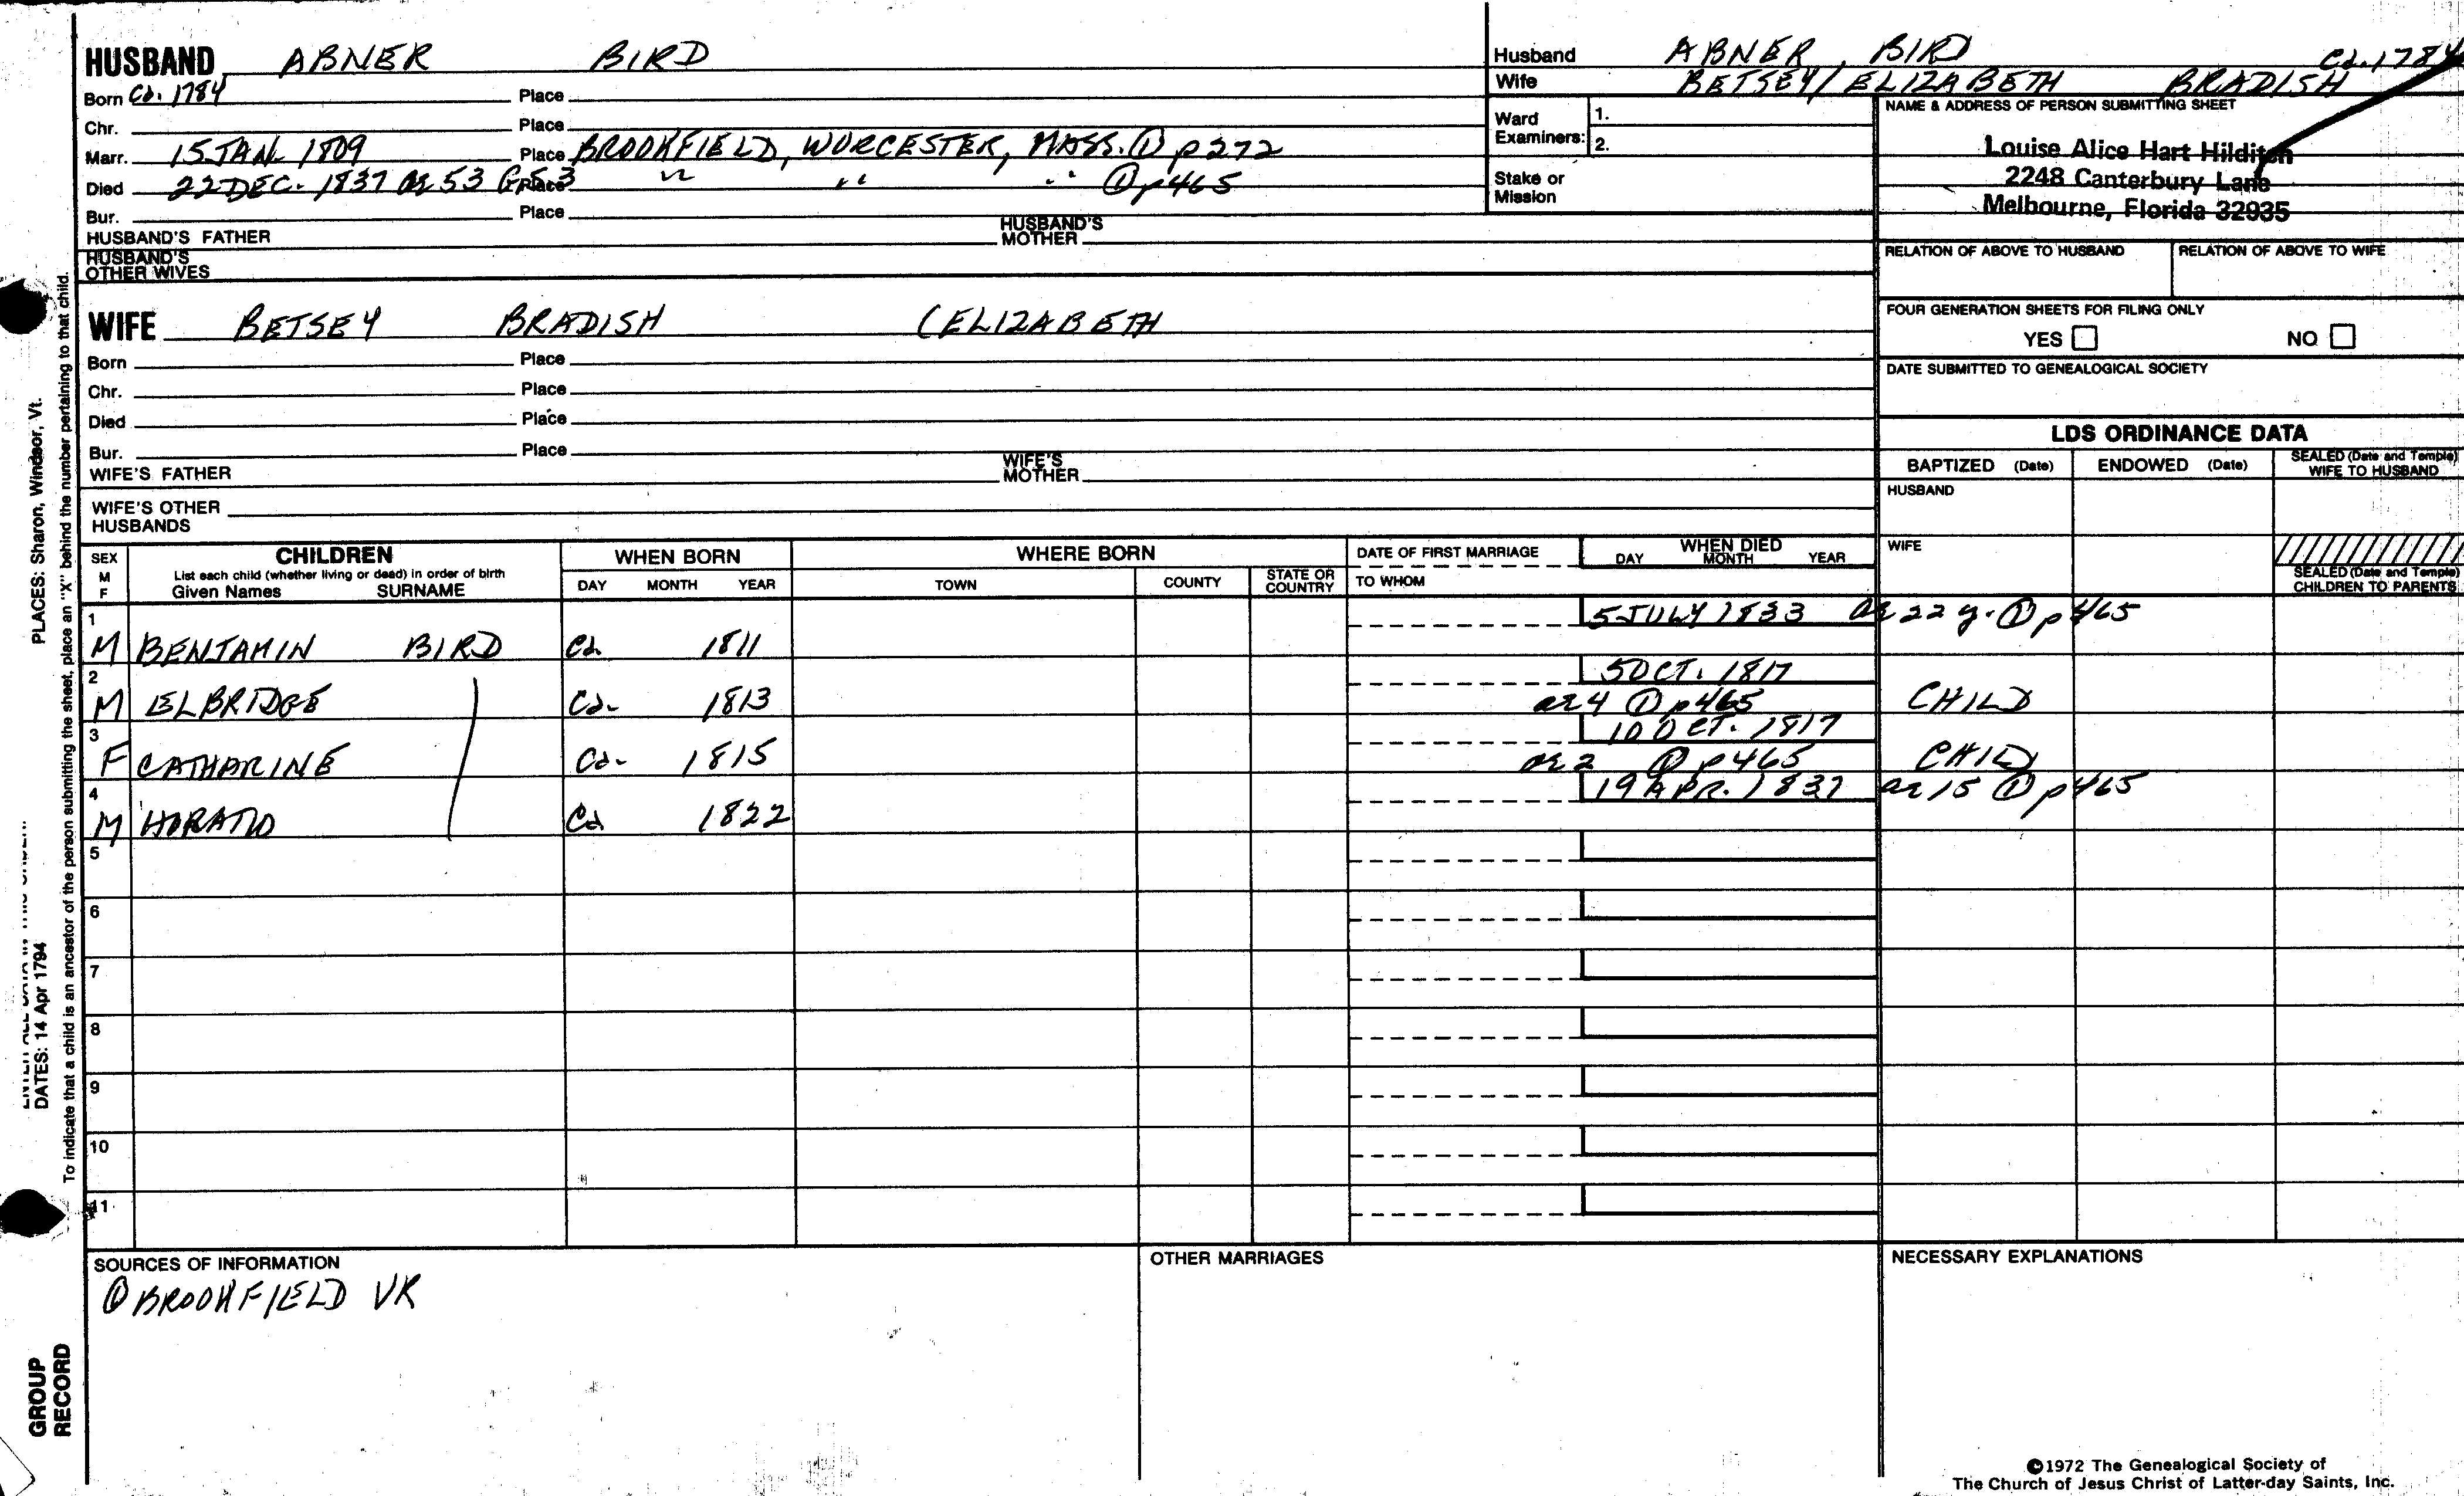 HUSBAND ABNER BIRD
Born Ca. 1784 Place
Chr. Place
Marr. 15 JAN. 1809 Place BROOKFIELD, WORCESTER, MASS. ① p 272
Died 22 DEC. 1837 ae 53 G.S. 53 Place " " " ① p 465
Bur. Place
HUSBAND'S FATHER HUSBAND'S MOTHER
HUSBAND'S OTHER WIVES
WIFE BETSEY BRADISH (ELIZABETH
Born Place
Chr. Place
Died Place
Bur. Place
WIFE'S FATHER WIFE'S MOTHER
WIFE'S OTHER HUSBANDS
Husband ABNER, BIRD Ca. 1784
Wife BETSEY/ELIZABETH BRADISH
Ward Examiners: 1.
2.
Stake or Mission
NAME & ADDRESS OF PERSON SUBMITTING SHEET
Louise Alice Hart Hilditch
2248 Canterbury Lane
Melbourne, Florida 32935
RELATION OF ABOVE TO HUSBAND RELATION OF ABOVE TO WIFE
FOUR GENERATION SHEETS FOR FILING ONLY
YES NO
DATE SUBMITTED TO GENEALOGICAL SOCIETY
LDS ORDINANCE DATA
BAPTIZED (Date) ENDOWED (Date) SEALED (Date and Temple) WIFE TO HUSBAND
HUSBAND
WIFE
SEALED (Date and Temple) CHILDREN TO PARENTS
SEX M F CHILDREN WHEN BORN WHERE BORN DATE OF FIRST MARRIAGE WHEN DIED
List each child (whether living or dead) in order of birth
Given Names SURNAME DAY MONTH YEAR TOWN COUNTY STATE OR COUNTRY TO WHOM DAY MONTH YEAR
1 5 JULY 1833 ae 22 y. ① p 465
M BENJAMIN BIRD Ca 1811
2 5 OCT. 1817
M ELBRIDGE Ca. 1813 ae 4 ① p 465 CHILD
3 10 OCT. 1817
F CATHARINE Ca. 1815 ae 2 ① p 465 CHILD
4 19 APR. 1837 ae 15 ① p 465
M HORATIO Ca 1822
5
6
7
8
9
10
11
SOURCES OF INFORMATION
① BROOKFIELD VR
OTHER MARRIAGES
NECESSARY EXPLANATIONS
©1972 The Genealogical Society of
The Church of Jesus Christ of Latter-day Saints, Inc.
PLACES: Sharon, Windsor, Vt.
DATES: 14 Apr 1794
To indicate that a child is an ancestor of the person submitting the sheet, place an "X" behind the number pertaining to that child.
GROUP
RECORD